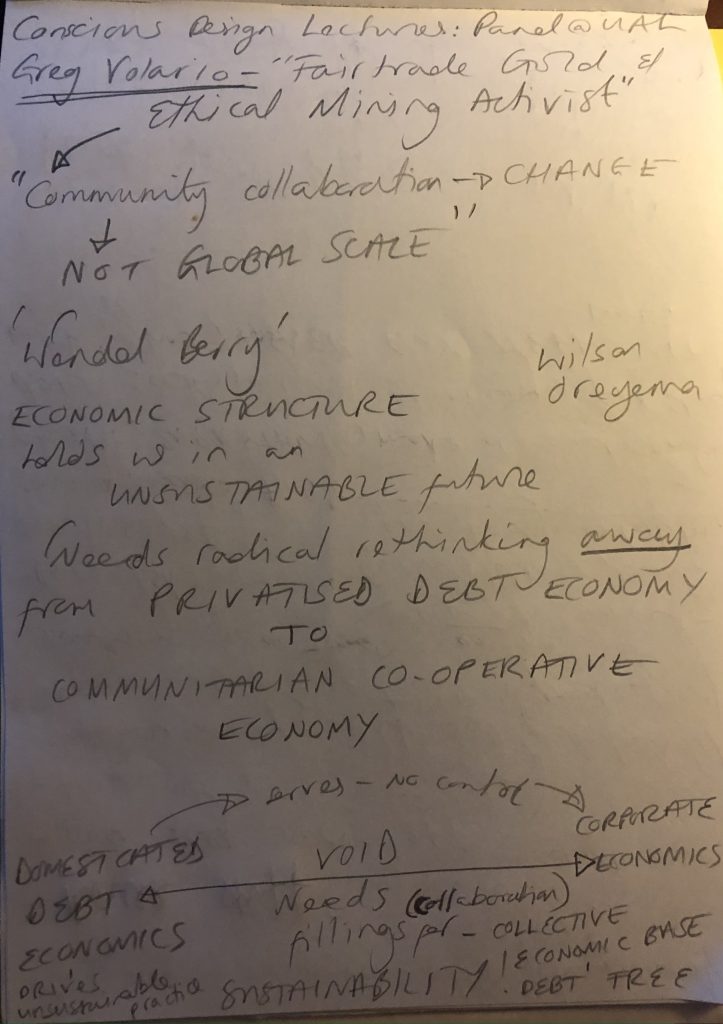 Conscious Design Lectures: Panel@UAL
Greg Valario - "Fairtrade Gold &
Ethical Mining Activist"
"Community collaboration → CHANGE
↓
NOT GLOBAL SCALE"
'Wendel Berry'
Wilson
Oreyema
ECONOMIC STRUCTURE
holds us in an
UNSUSTAINABLE future
Needs radical rethinking away
from PRIVATISED DEBT ECONOMY
TO
COMMUNITARIAN CO-OPERATIVE
ECONOMY
serves - no control
CORPORATE
ECONOMICS
DOMESTICATED
DEBT
ECONOMICS
VOID
Needs (collaboration)
filling for - COLLECTIVE
ECONOMIC BASE
DEBT FREE
SUSTAINABILITY!
DRIVES
unsustainable
practice